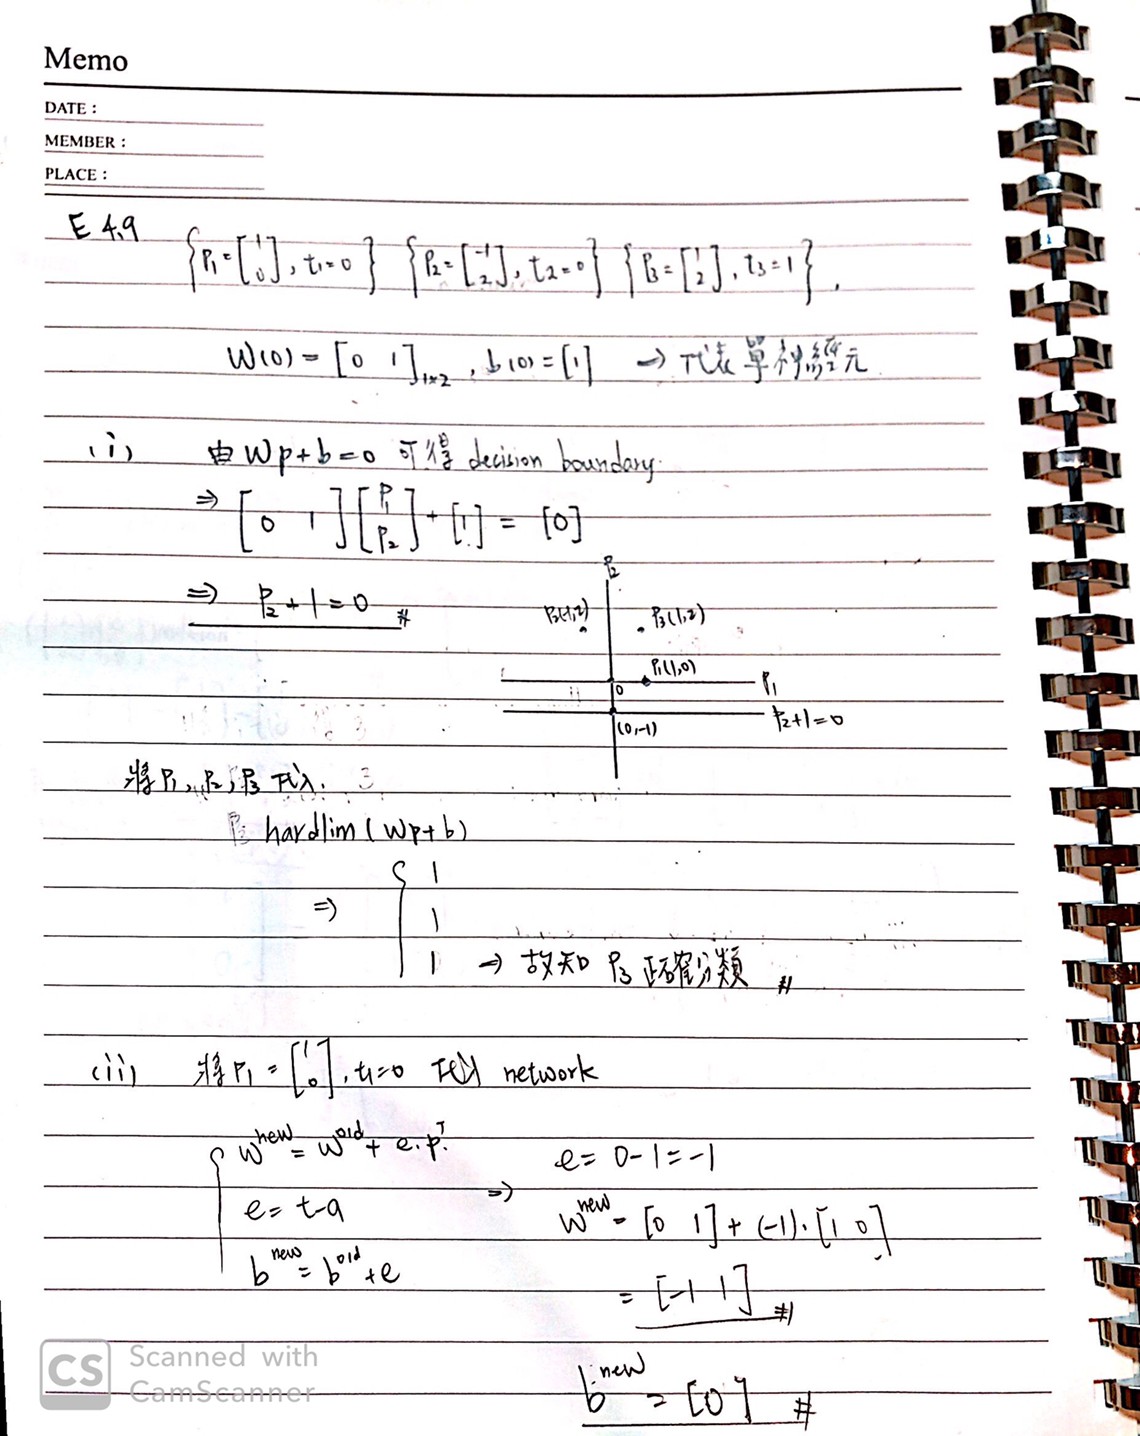 Memo
DATE :
MEMBER :
PLACE :
E 4.9
{P₁=[1 0], t₁=0} {P₂=[-1 2], t₂=0} {P₃=[1 2], t₃=1}.
W(0) = [0 1]₁ₓ₂, b(0)=[1] → 代表單神經元
(i) 由 Wp+b=0 可得 decision boundary.
⇒ [0 1][P₁ P₂] + [1] = [0]
⇒ P₂+1=0 #
P₂
P₂(-1,2) P₃(1,2)
P₁(1,0)
0 P₁
P₂+1=0
(0,-1)
將P₁, P₂, P₃ 代入.
hardlim(Wp+b)
⇒ { 1
1
1 → 故知 P₃ 正確分類 #
(ii) 將P₁ = [1 0], t₁=0 代入 network
{ W^new = W^old + e·p^T.
e= t-a
b^new = b^old +e
⇒ e= 0-1=-1
W^new = [0 1]+(-1)·[1 0]
= [-1 1] #
b^new = [0] #
CS
Scanned with
CamScanner